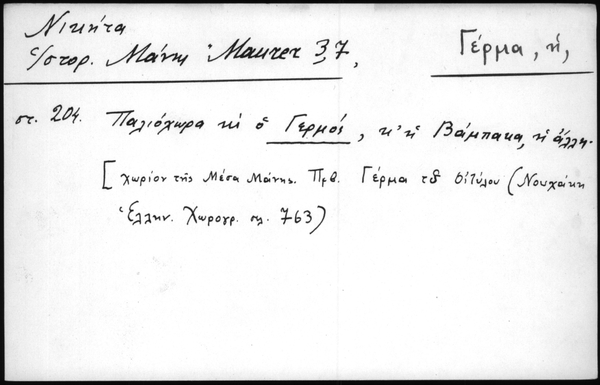 Νικήτα
Ἱστορ. Μάνης Maurer 37,
Γέρμα, ἡ,
στ. 204. Παλιόχωρα κι ὁ Γερμός, κ' ἡ Βάμπακα, ἡ ἄλλη.
[χωρίον τῆς Μέσα Μάνης. Πρβ. Γέρμα τοῦ Οἰτύλου (Νουχάκη
Ἑλλην. Χωρογρ. σελ. 763)